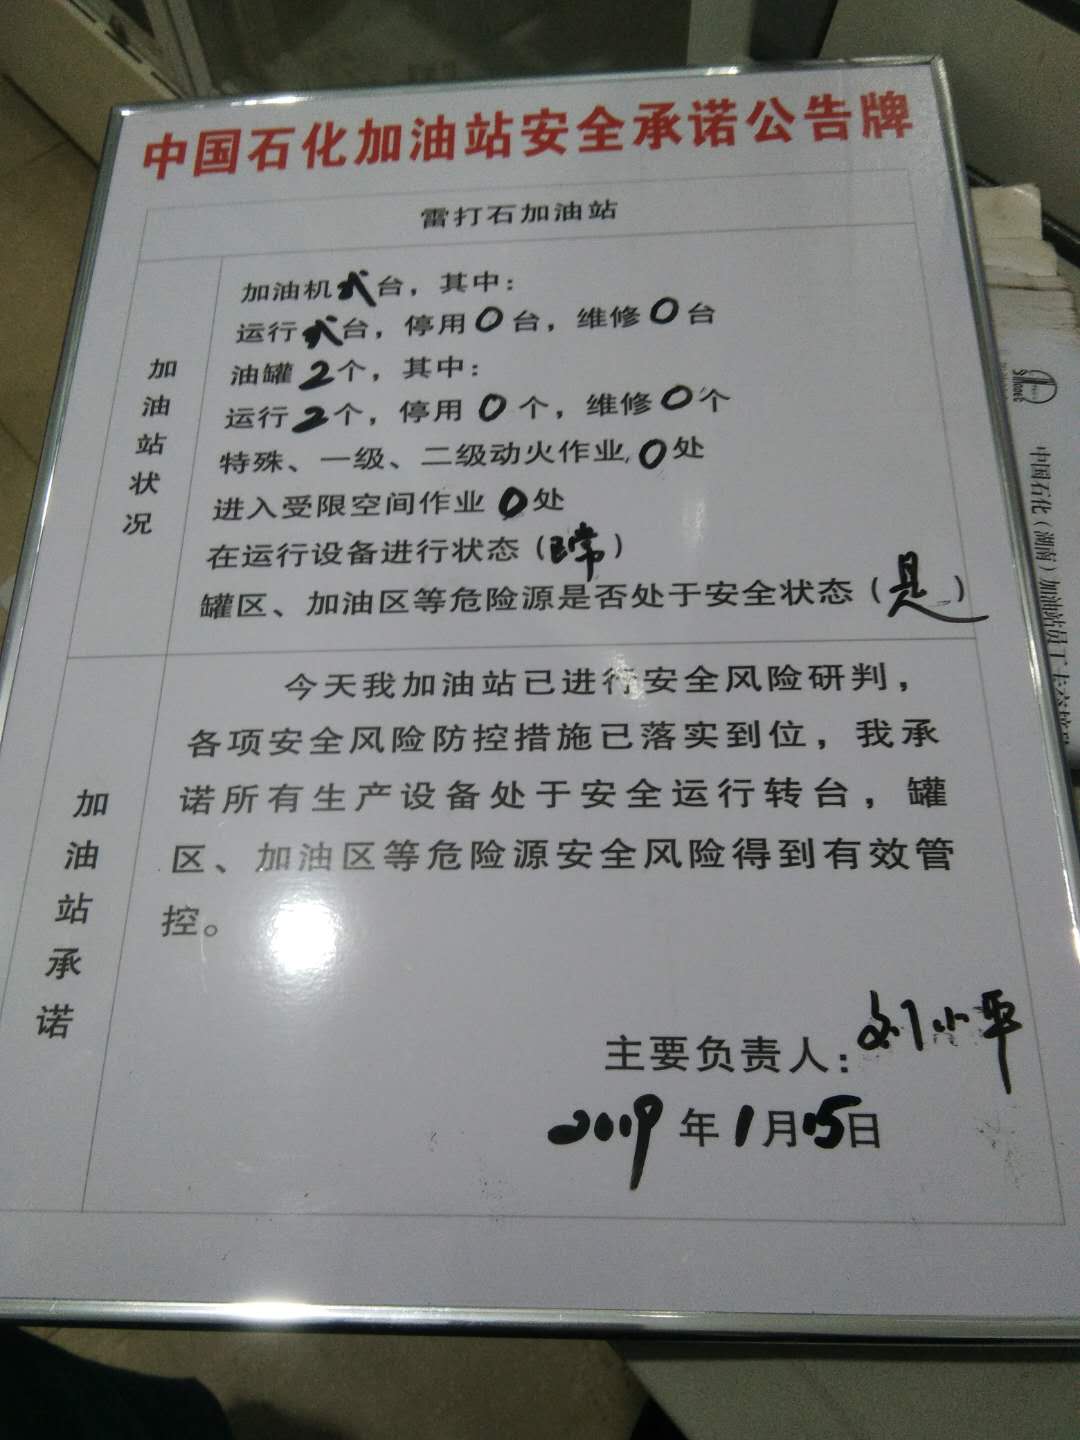 中国石化加油站安全承诺公告牌
雷打石加油站
加油站状况
加油机弍台，其中：
运行弍台，停用0台，维修0台
油罐2个，其中：
运行2个，停用0个，维修0个
特殊、一级、二级动火作业，0处
进入受限空间作业0处
在运行设备进行状态（正常）
罐区、加油区等危险源是否处于安全状态（是）
加油站承诺
今天我加油站已进行安全风险研判，
各项安全风险防控措施已落实到位，我承
诺所有生产设备处于安全运行转台，罐
区、加油区等危险源安全风险得到有效管
控。
主要负责人：刘小平
2019年1月15日
中国石化（湖南）加油站员工